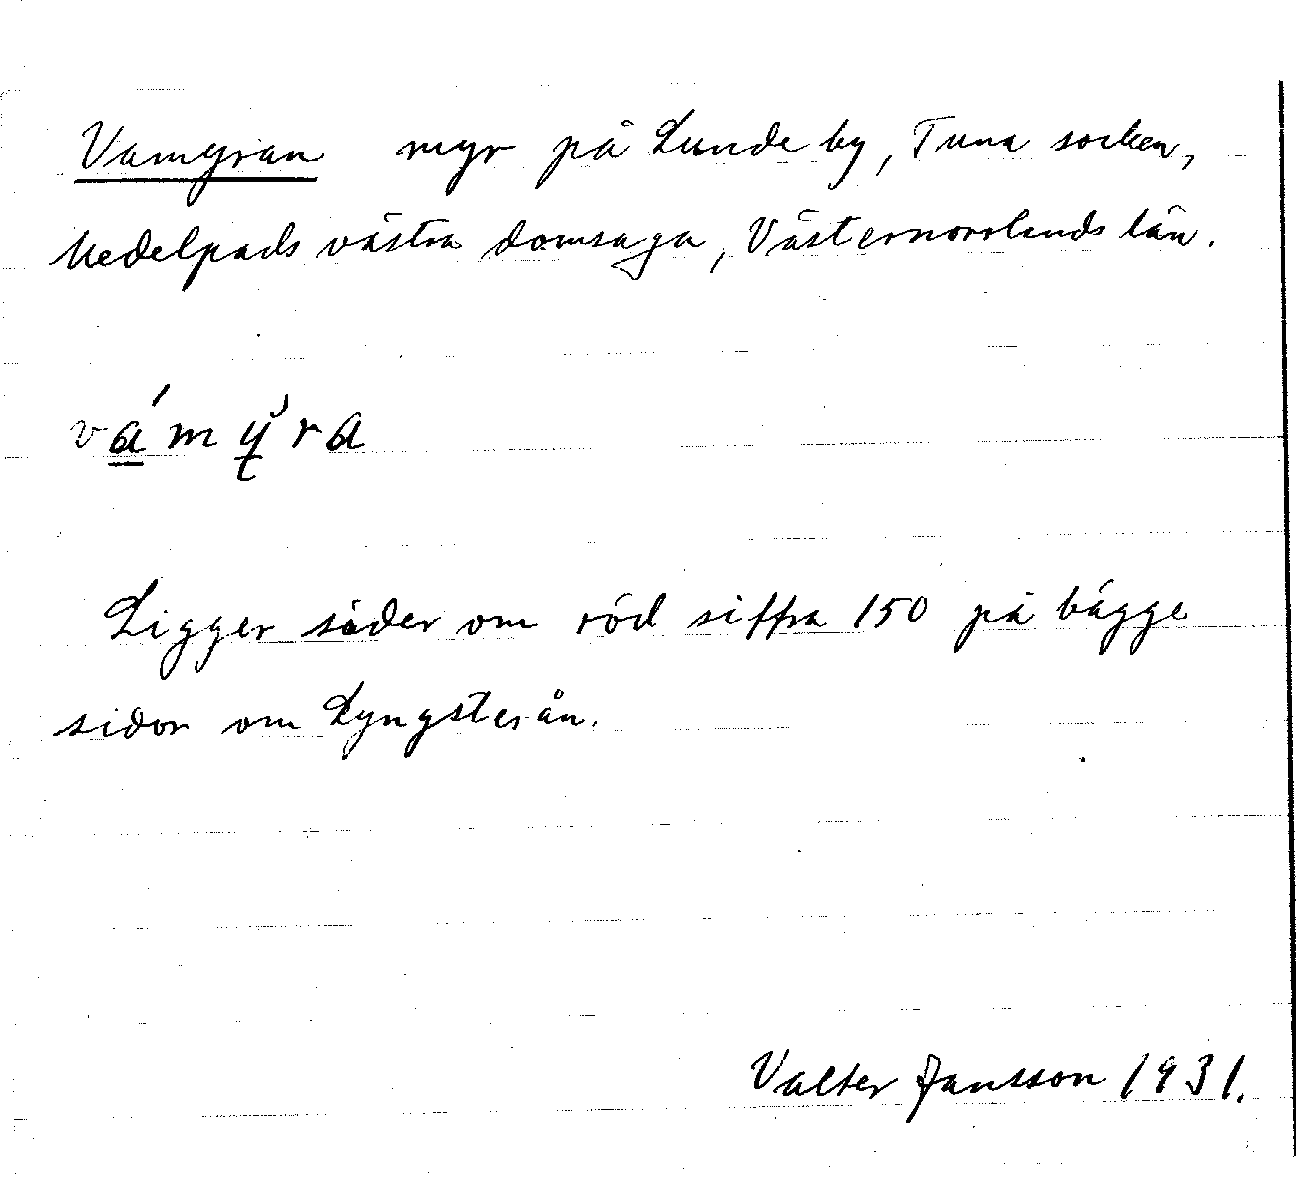 Vamyran myr på Lunde by, Tuna socken,
Medelpads västra domsaga, Västernorrlands län.
vámy̆ra
Ligger söder om röd siffra 150 på bägge
sidor om Lyngsterån.
Valter Jansson 1931.